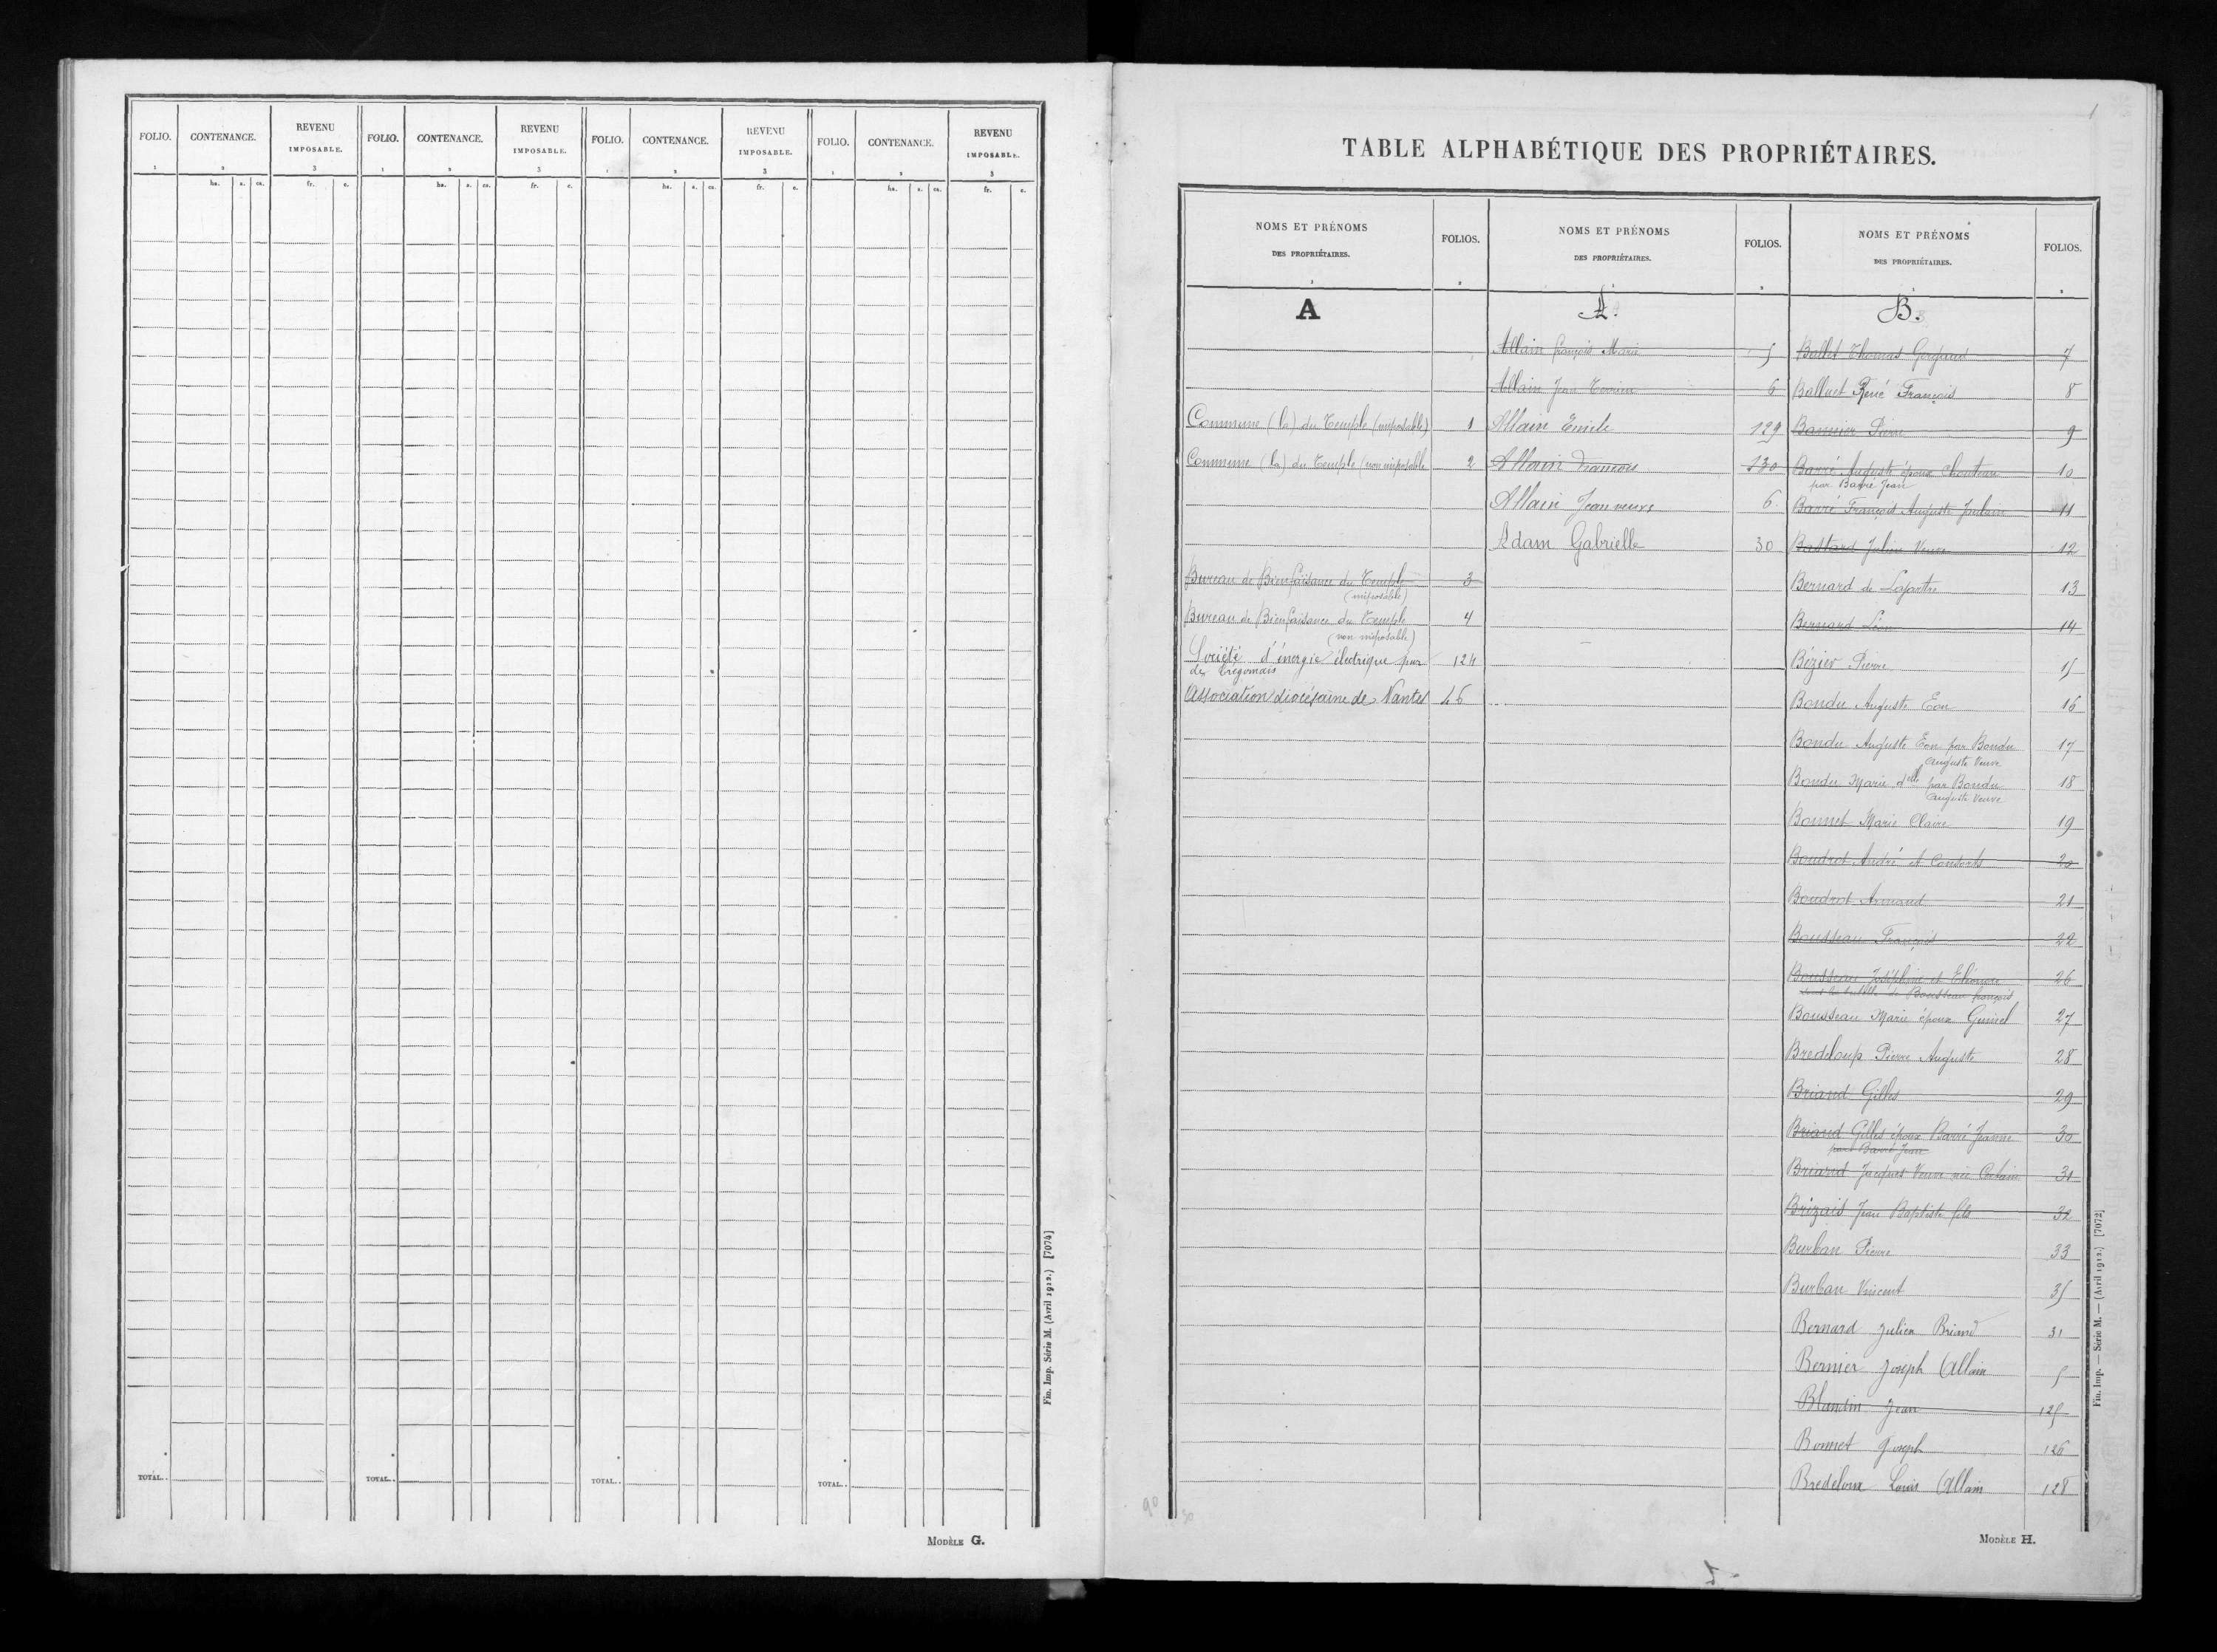 FOLIO. CONTENANCE. REVENU IMPOSABLE. FOLIO. CONTENANCE. REVENU IMPOSABLE. FOLIO. CONTENANCE. REVENU IMPOSABLE. FOLIO. CONTENANCE. REVENU IMPOSABLE.
1 2 3 1 2 3 1 2 3 1 2 3
ha. a. ca. fr. c. ha. a. ca. fr. c. ha. a. ca. fr. c. ha. a. ca. fr. c.
TOTAL.. TOTAL.. TOTAL.. TOTAL..
Fin. Imp. Série M. (Avril 1912.) [7074]
MODÈLE G.
1
TABLE ALPHABÉTIQUE DES PROPRIÉTAIRES.
NOMS ET PRÉNOMS
DES PROPRIÉTAIRES.
FOLIOS.
A
Commune (la) du Temple (imposable) 1
Commune (la) du Temple (non imposable 2
Bureau de Bienfaisance du Temple 3
(imposable)
Bureau de Bienfaisance du Temple 4
(non imposable)
Société d'énergie électrique par 124
de
Association diocésaine de Nantes 46
NOMS ET PRÉNOMS
DES PROPRIÉTAIRES.
FOLIOS.
A.
Allain François Marie 5
Allain Jean 6
Allain Emile 129
Allain François 130
Allain Jean veuve 6.
Adam Gabrielle 30
NOMS ET PRÉNOMS
DES PROPRIÉTAIRES.
FOLIOS.
B.
Ballet Thomas 7
Balluet René François 8
Bannier Pierre 9
Barré Auguste époux 10
par Barré Jean
Barré François Auguste 11
Bastard Julien Veuve 12
Bernard de 13
Bernard Léon 14
Bézier Pierre 15
Bondu Auguste Eon 16
Bondu Auguste Eon par Bondu 17
Auguste Veuve
Bondu Marie delle par Bondu 18
Auguste Veuve
Bonnet Marie Claire 19
Boudrot André et Consorts 20
Boudrot Armand 21
Bousseau François 22
Bousseau Joséphine et 26
de Bousseau françois
Bousseau Marie époux 27
Bredeloup Pierre Auguste 28
Briand Gilles 29
Briand Gilles époux Barré Jeanne 30
par Barré Jean
Briand Jacques Veuve née 31
Brizais Jean Baptiste fils 32
Burban Pierre 33
Burban Vincent 35
Bernard Julien Briand 31
Bernier Joseph Allain 5
Blandin Jean 125
Bonnet Joseph 126
Bredeloux Louis Allain 128
90
30
Fin. Imp. — Série M. — (Avril 1912.) [7072]
MODÈLE H.